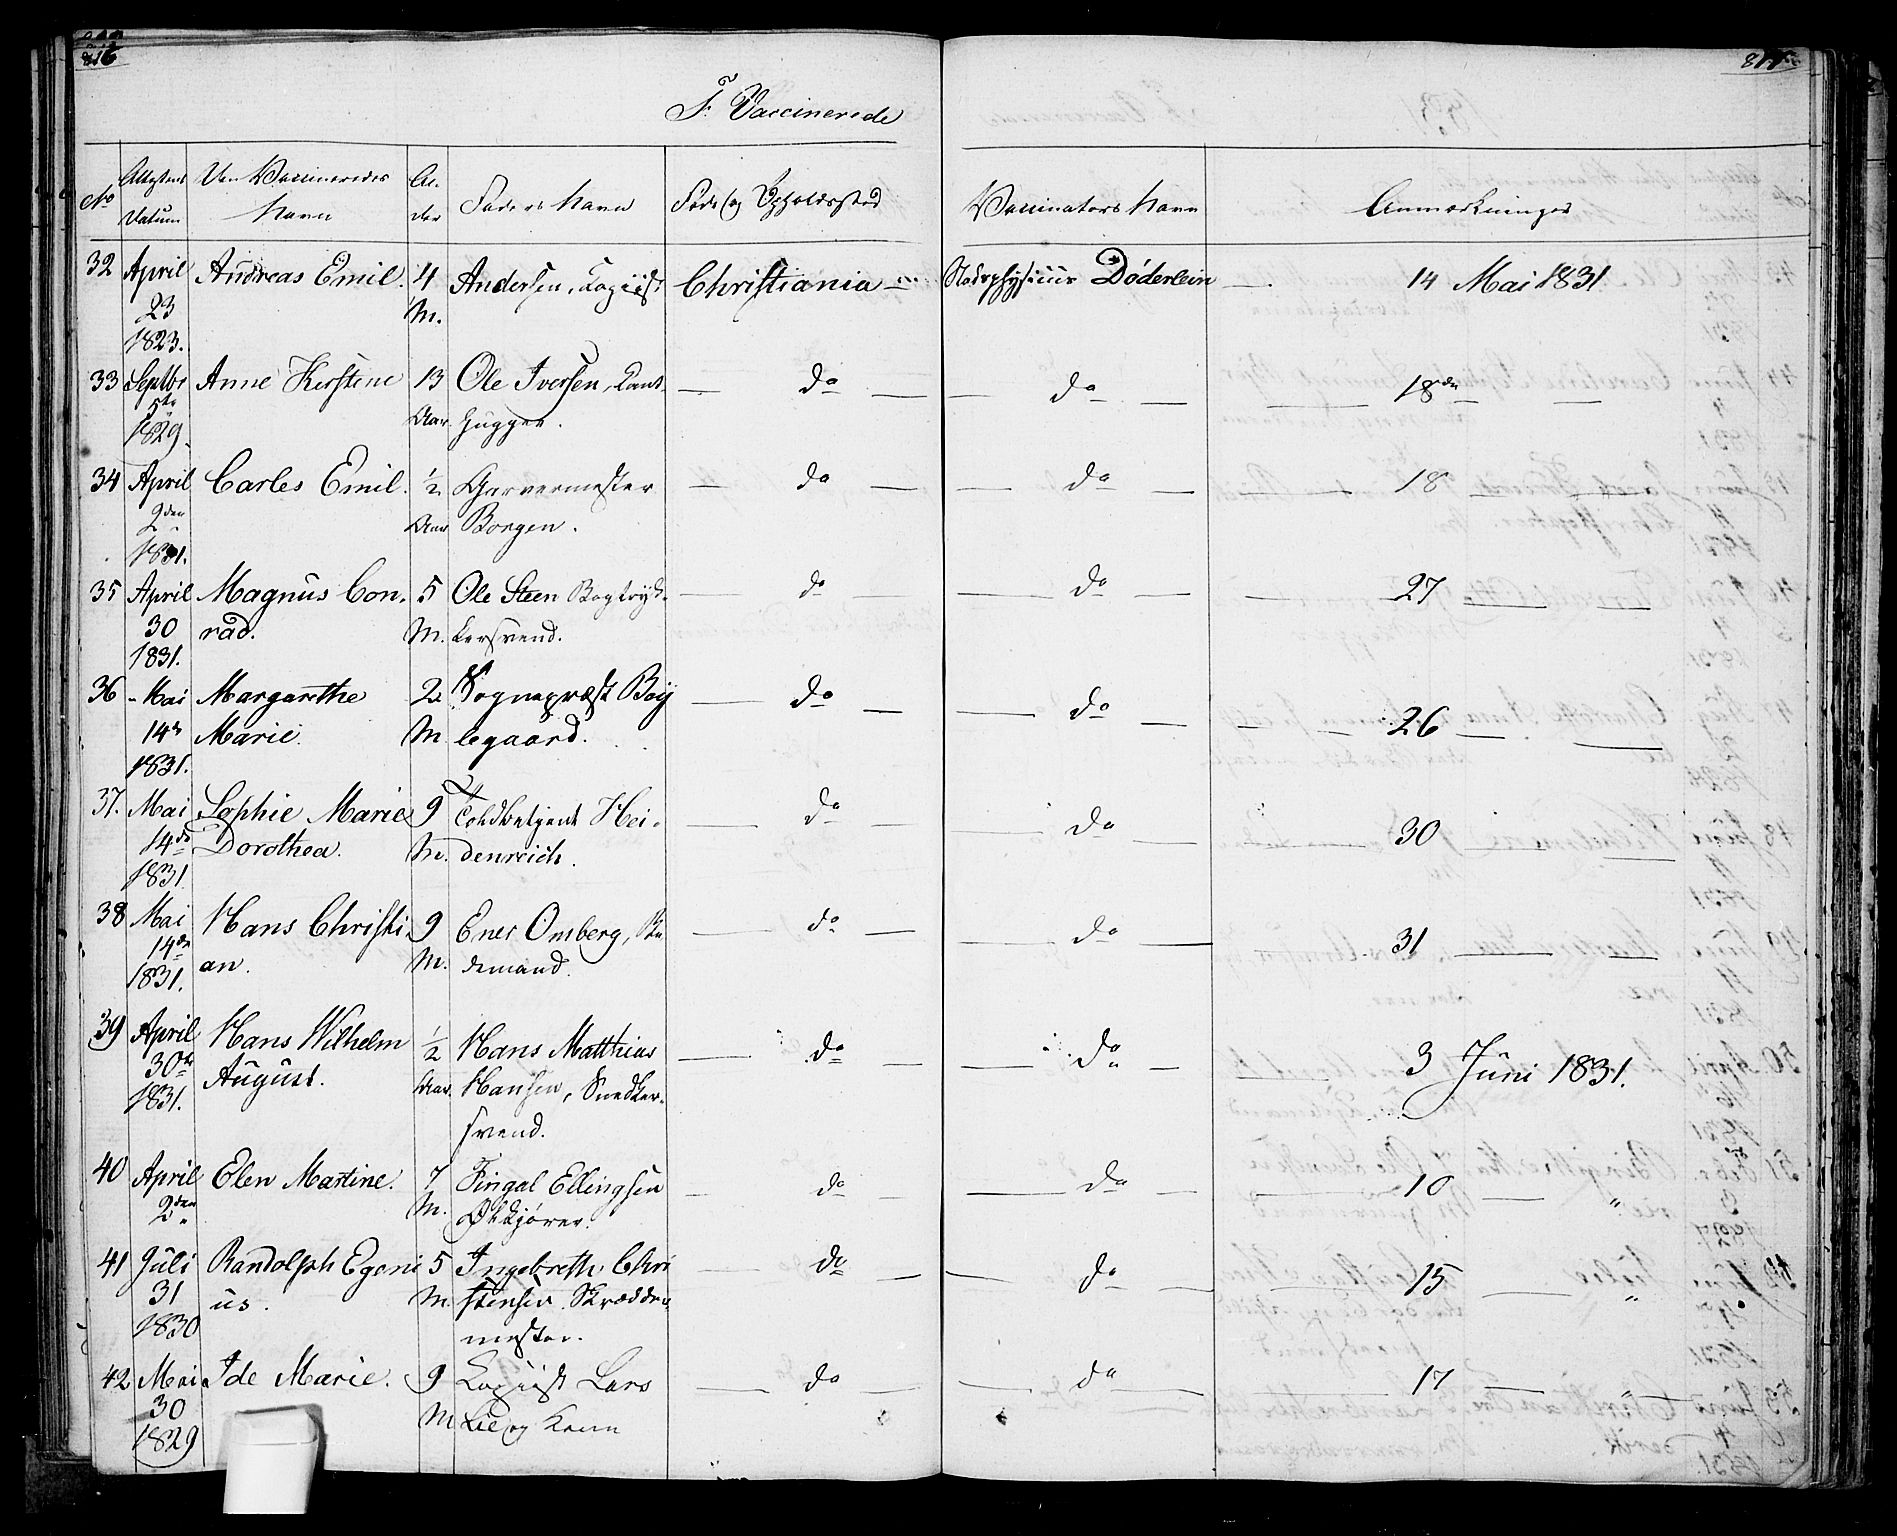 816
817
F. Vaccinerede
No
Attestens Datum
Den Vaccineredes Navn
Al-der
Faders Navn
Føde og Opholdssted
Vaccinators Navn
Anmærkninger
32 April Andreas Emil. 4 Andersen, Logiist Christiania Stadsphysicus Døderlein 14 Mai 1831
23 M.
1823.
33 Septbr Anne Kirstine 13 Ole Iversen, do do 18de
5te Aar hugger.
1829.
34 April Carles Emil. 1/2 Garvermester do do 18
2den Aar Borgen.
1831.
35 April Magnus Con- 5 Ole Steen Bogtryk- do do 27
30 rad. M. kersvend.
1831.
36 Mai Margarethe 2 Sognepræst Bøy do do 26
14de Marie. M. legaard.
1831.
37. Mai Sophie Marie 9 Toldbetjent Hei- do do 30
14de Dorothea. M. denreich.
1831
38 Mai Hans Christi- 9 Ener Omberg, do do 31
14de an. M.
1831.
39 April Hans Wilhelm 1/2 Hans Matthias do do 3 Juni 1831.
30te August. Aar. Hansen, Snedker-
1831. svend.
40 April Elen Martine. 7 Fingal Ellingsen do do 10 "
2den M.
41 Juli Randolph Egeni 5 Ingebreth Chri do do 15 "
31 us. M. stensen. Skrædder-
1830 mester.
42 Mai Ide Marie. 9 Logiist Lars do do 17 "
30 M. Lie og Kone
1829